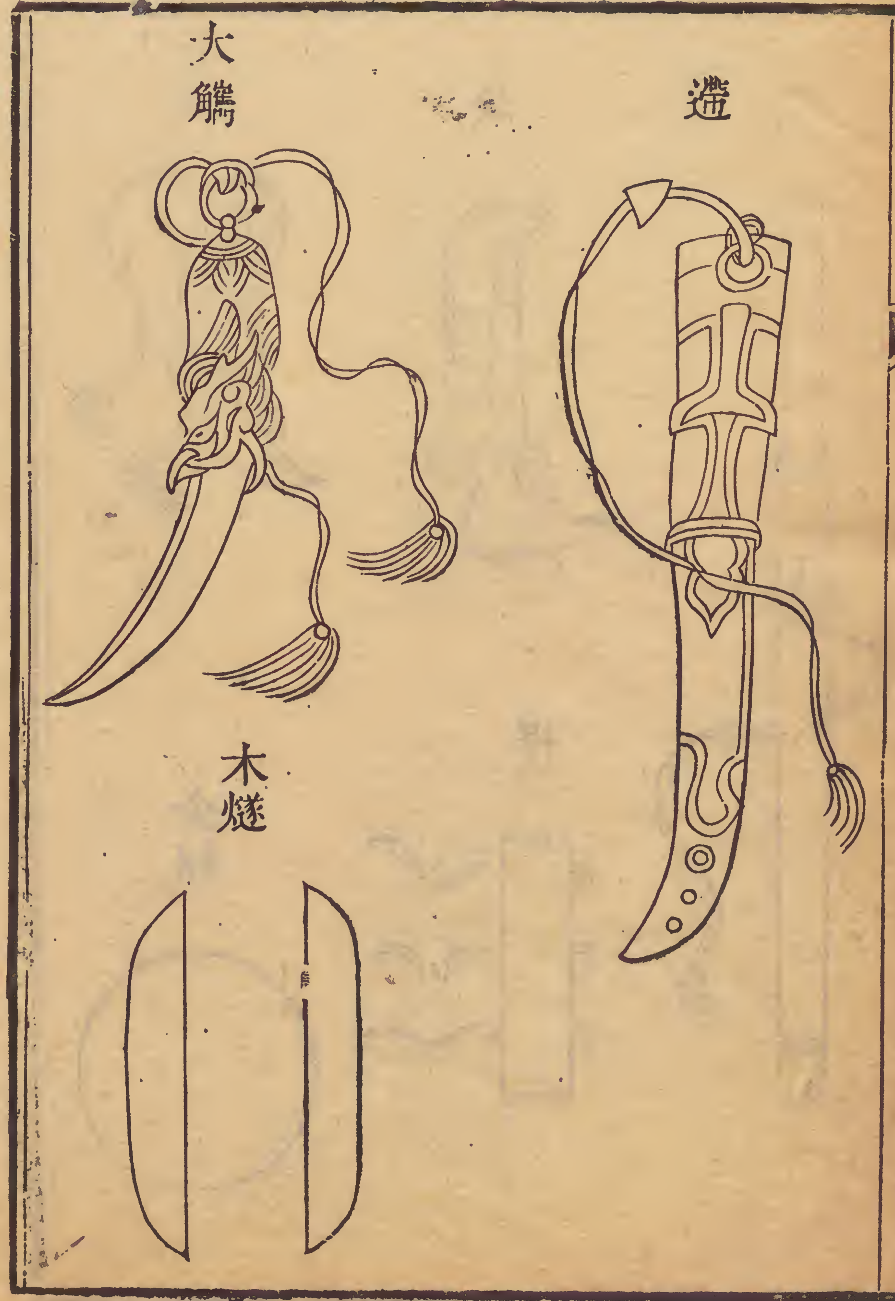 遰
大觿
木燧